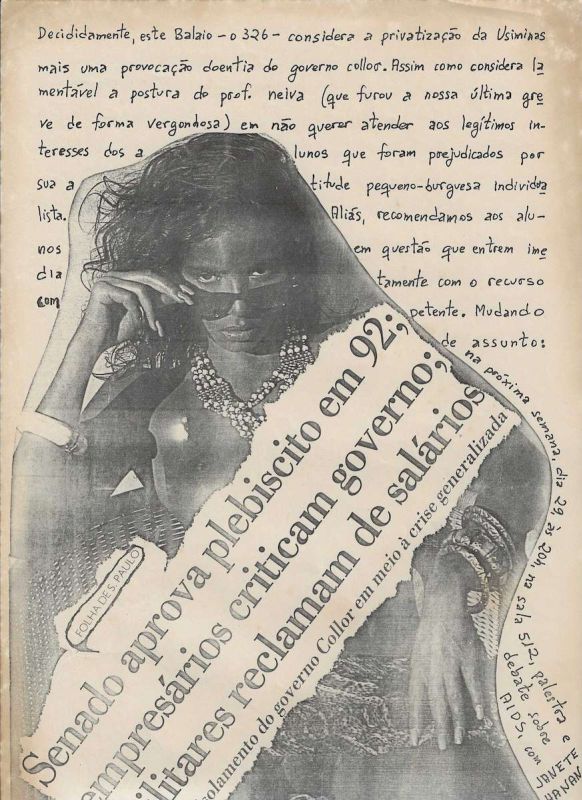 Decididamente, este Balaio - o 326 - considera a privatização da Usiminas
mais uma provocação doentia do governo collor. Assim como considera la
mentável a postura do prof. neiva (que furou a nossa última gre
ve de forma vergonhosa) em não querer atender aos legítimos in-
teresses dos a lunos que foram prejudicados por
sua a titude pequeno-burguesa individua
lista. Aliás, recomendamos aos alu-
nos em questão que entrem ime
dia tamente com o recurso
com petente. Mudando
de assunto:
na próxima semana, dia 29, às 20h, na sala 512, palestra e
debate sobre
AIDS, com
JANETE
HANAN
FOLHA DE S. PAULO
Senado aprova plebiscito em 92;
empresários criticam governo;
ilitares reclamam de salários
solamento do governo Collor em meio à crise generalizada